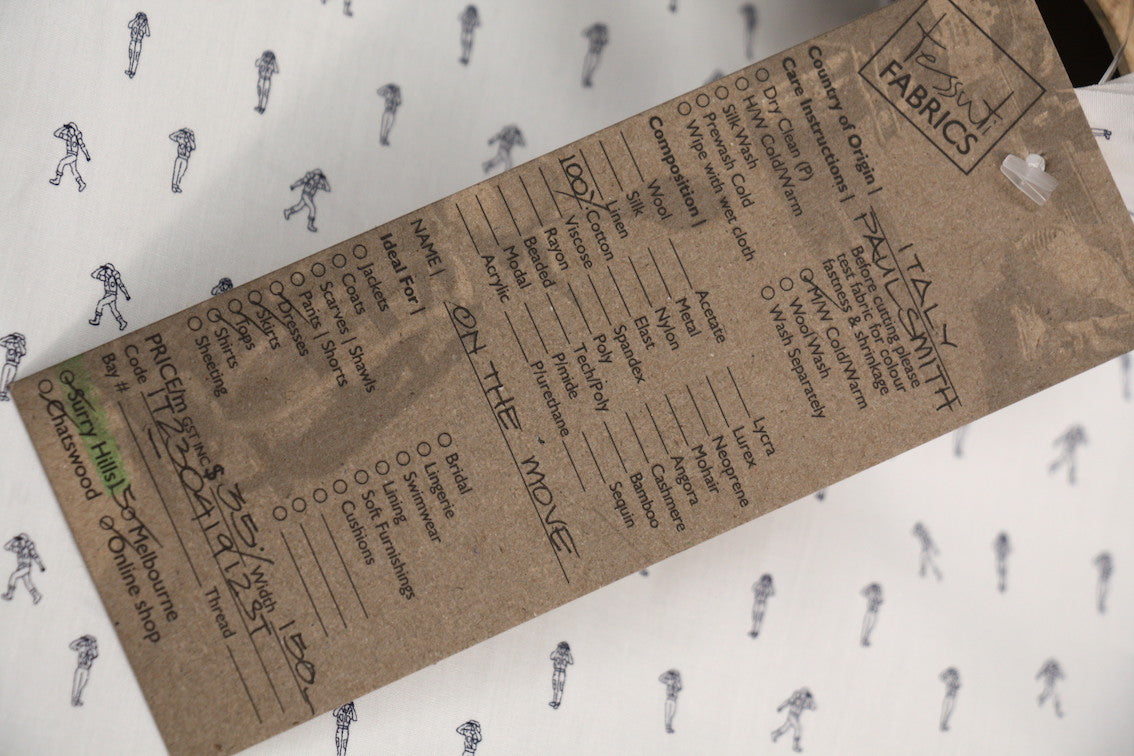 tessuti
FABRICS
Country of Origin | ITALY
PAUL SMITH
Care Instructions | Before cutting please
test fabric for colour
fastness & shrinkage
Dry Clean (P)
H/W Cold/Warm
Silk Wash
Prewash Cold
Wipe with wet cloth
M/W Cold/Warm
Wool Wash
Wash Separately
Composition |
Wool
Silk
Linen
100% Cotton
Viscose
Rayon
Beaded
Modal
Acrylic
Acetate
Metal
Nylon
Elast
Spandex
Poly
Tech/Poly
P/mide
P/urethane
Lycra
Lurex
Neoprene
Mohair
Angora
Cashmere
Bamboo
Sequin
NAME | ON THE . MOVE
Ideal For |
Jackets
Coats
Scarves | Shawls
Pants | Shorts
Dresses
Skirts
Tops
Shirts
Sheeting
Bridal
Lingerie
Swimwear
Lining
Soft Furnishings
Cushions
PRICE/m GST INC $ 35./ Width 150
Code IT22041912ST
Bay # Thread
Surry Hills 50 Melbourne
Chatswood Online shop